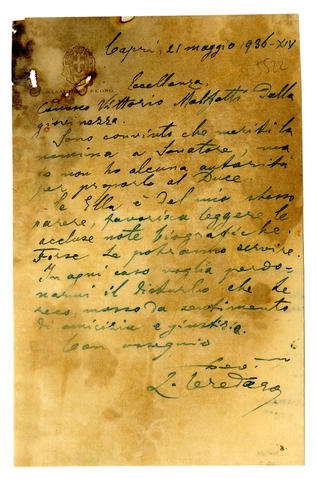 Capri, 21 maggio 1936-XIV
Eccellenza,
Conosco Vittorio dalla
giovinezza.
Sono convinto che meriti la
nomina a Senatore, ma
io non ho alcuna autorità
per proporlo al Duce.
Se Ella è del mio stesso
parere, favorisca leggere le
accluse note biografiche.
Forse Le potranno servire.
In ogni caso voglia perdo-
narmi il disturbo che Le
reco mosso da sentimento
di amicizia e giustizia.
Con ossequio